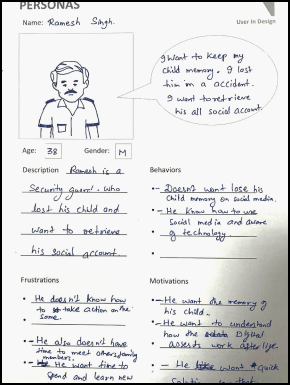 PERSONAS
User In Design
Name: Ramesh Singh.
I want to keep my
child memory. I lost
him in a accident.
I want to retrieve
his all social account
Age: 38
Gender: M
Description Ramesh is a
Security guard. who
lost his child and
want to retrieve
his social account.
Behaviors
Doesn't want lose his
Child memory on social media.
He know how to use
Social media and aware
of technology.
Frustrations
He doesn't know how
to take action on the
same.
He also doesn't have
time to meet others family
members.
He want time to
spend and learn new
Motivations
He want the memory of
his child.
He want to understand
how the Digital
assests work after life.
He quick